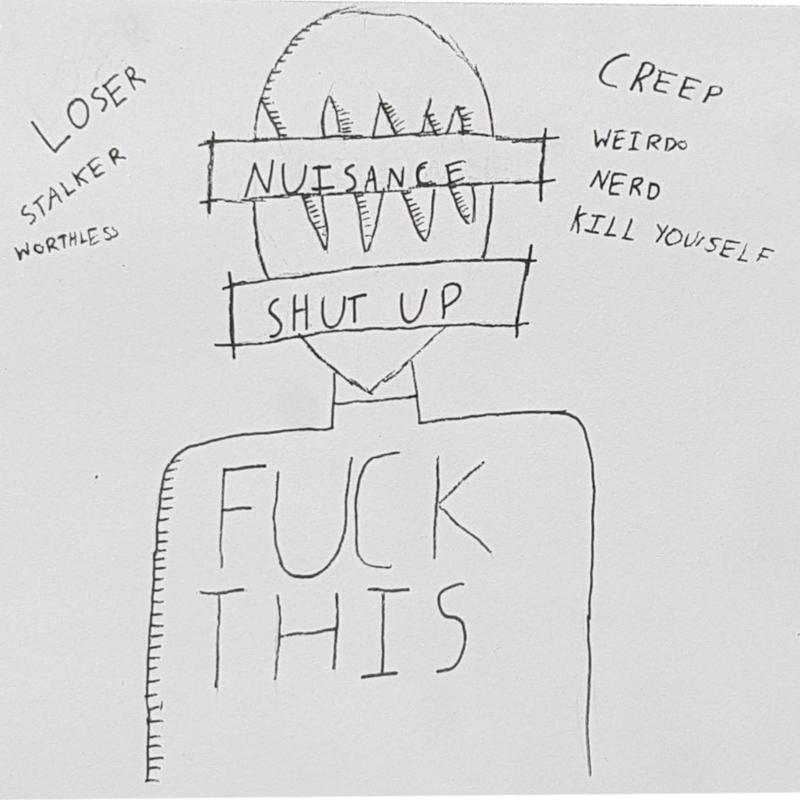 LOSER
STALKER
WORTHLESS
CREEP
WEIRDO
NERD
KILL YOURSELF
NUISANCE
SHUT UP
FUCK
THIS